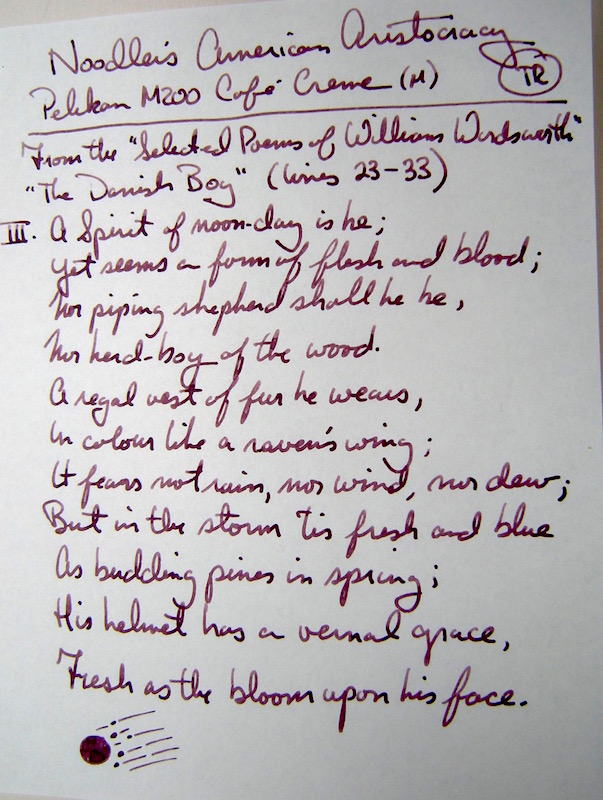 Noodler's American Aristocracy
TR
Pelikan M200 Café Creme (M)
From the "Selected Poems of William Wordsworth"
"The Danish Boy" (lines 23-33)
III. A Spirit of noon-day is he;
Yet seems a form of flesh and blood;
Nor piping shepherd shall he be,
Nor herd-boy of the wood.
A regal vest of fur he wears,
In colour like a raven's wing;
It fears not rain, nor wind, nor dew;
But in the storm 'tis fresh and blue
As budding pines in spring;
His helmet has a vernal grace,
Fresh as the bloom upon his face.